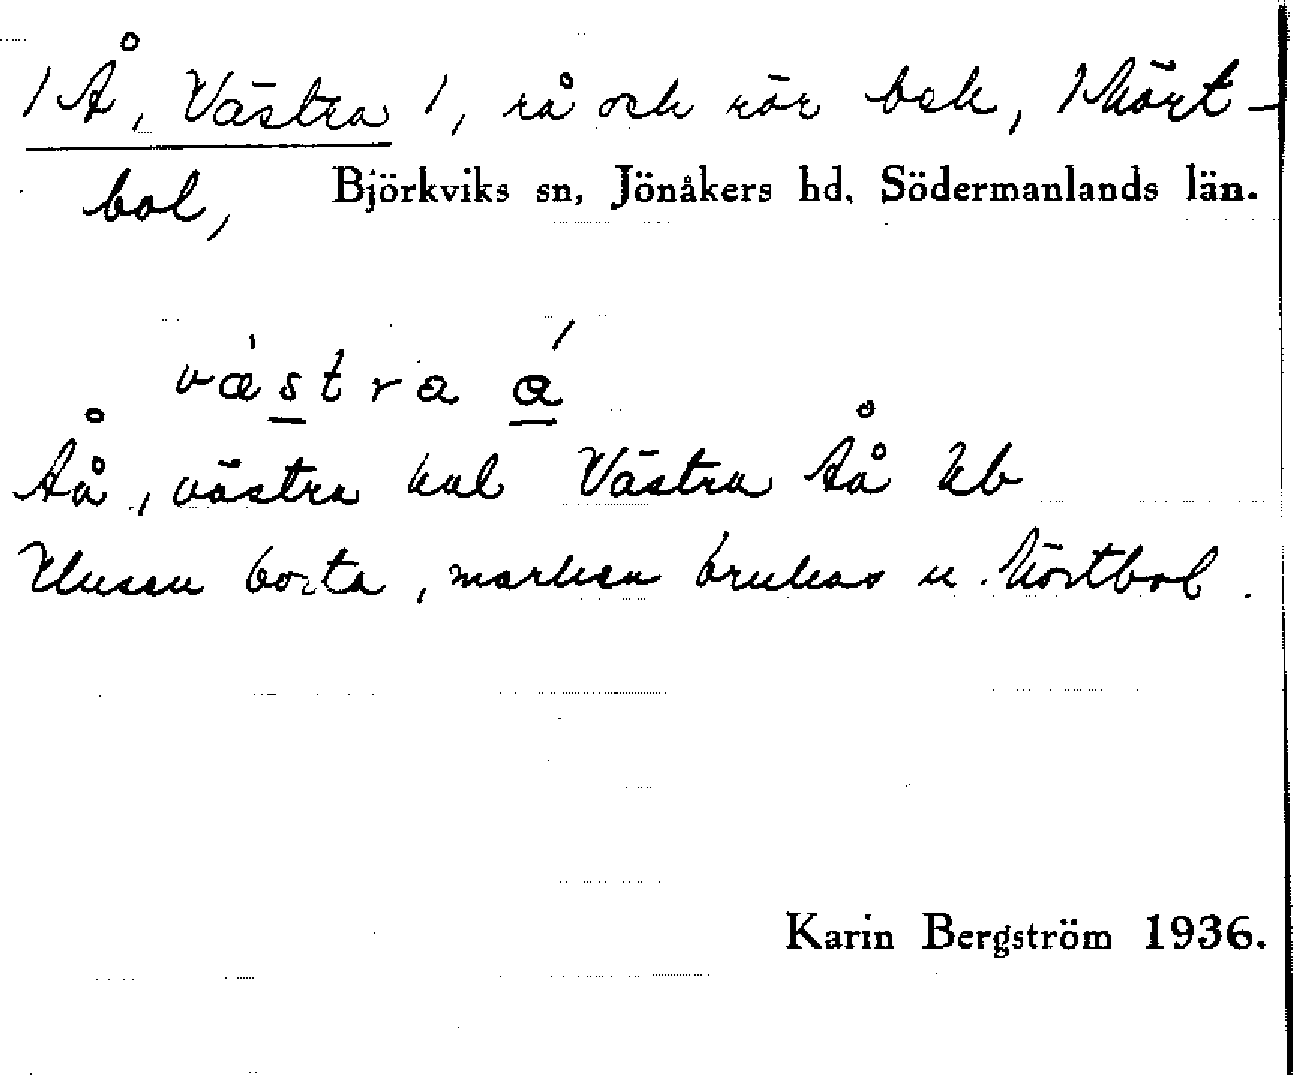 /Å, Västra/, rå och rör bek, Mört-
bol, Björkviks sn, Jönåkers hd, Södermanlands län.
væstra a
Åå, västra kal Västra Åå Kb
Husen borta, marken brukas u. Mörtbol.
Karin Bergström 1936.